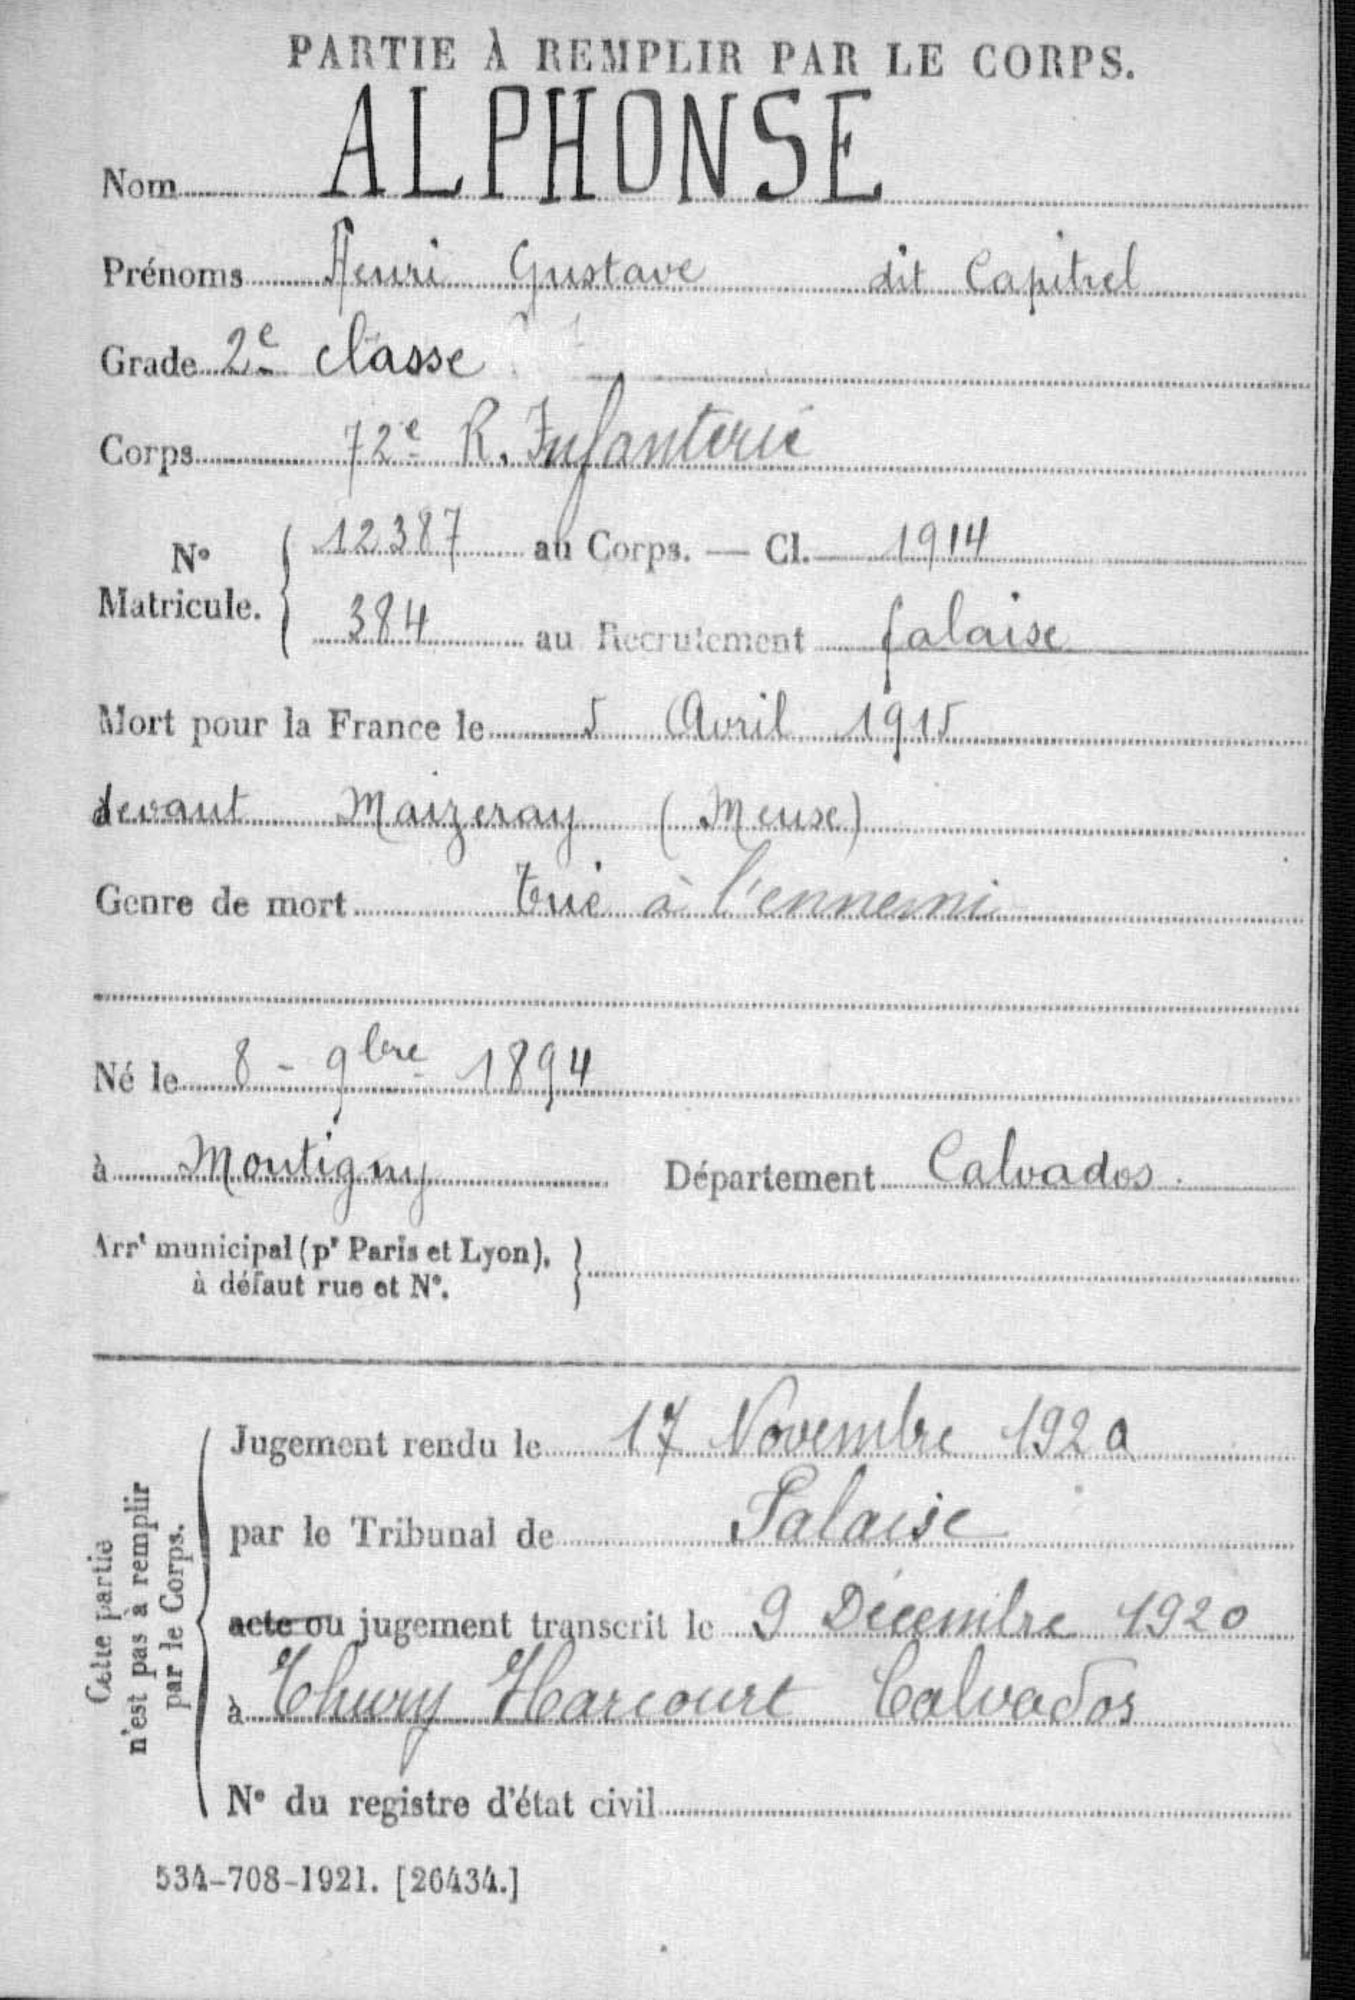 PARTIE À REMPLIR PAR LE CORPS.
Nom ALPHONSE
Prénoms Henri Gustave dit Capitrel
Grade 2e classe
Corps 72e R. Infanterie
N° Matricule. { 12387 au Corps. — Cl. 1914
384 au Recrutement falaise
Mort pour la France le 5 Avril 1915
devant Maizeray (Meuse)
Genre de mort tué à l'ennemi
Né le 8 - 9bre 1894
à Montigny Département Calvados.
Arrt municipal (pr Paris et Lyon), }
à défaut rue et N°.
Cette partie
n'est pas à remplir
par le Corps.
Jugement rendu le 17 Novembre 1920
par le Tribunal de Falaise
acte ou jugement transcrit le 9 Décembre 1920
à Thury Harcourt Calvados
N° du registre d'état civil
534-708-1921. [26434.]